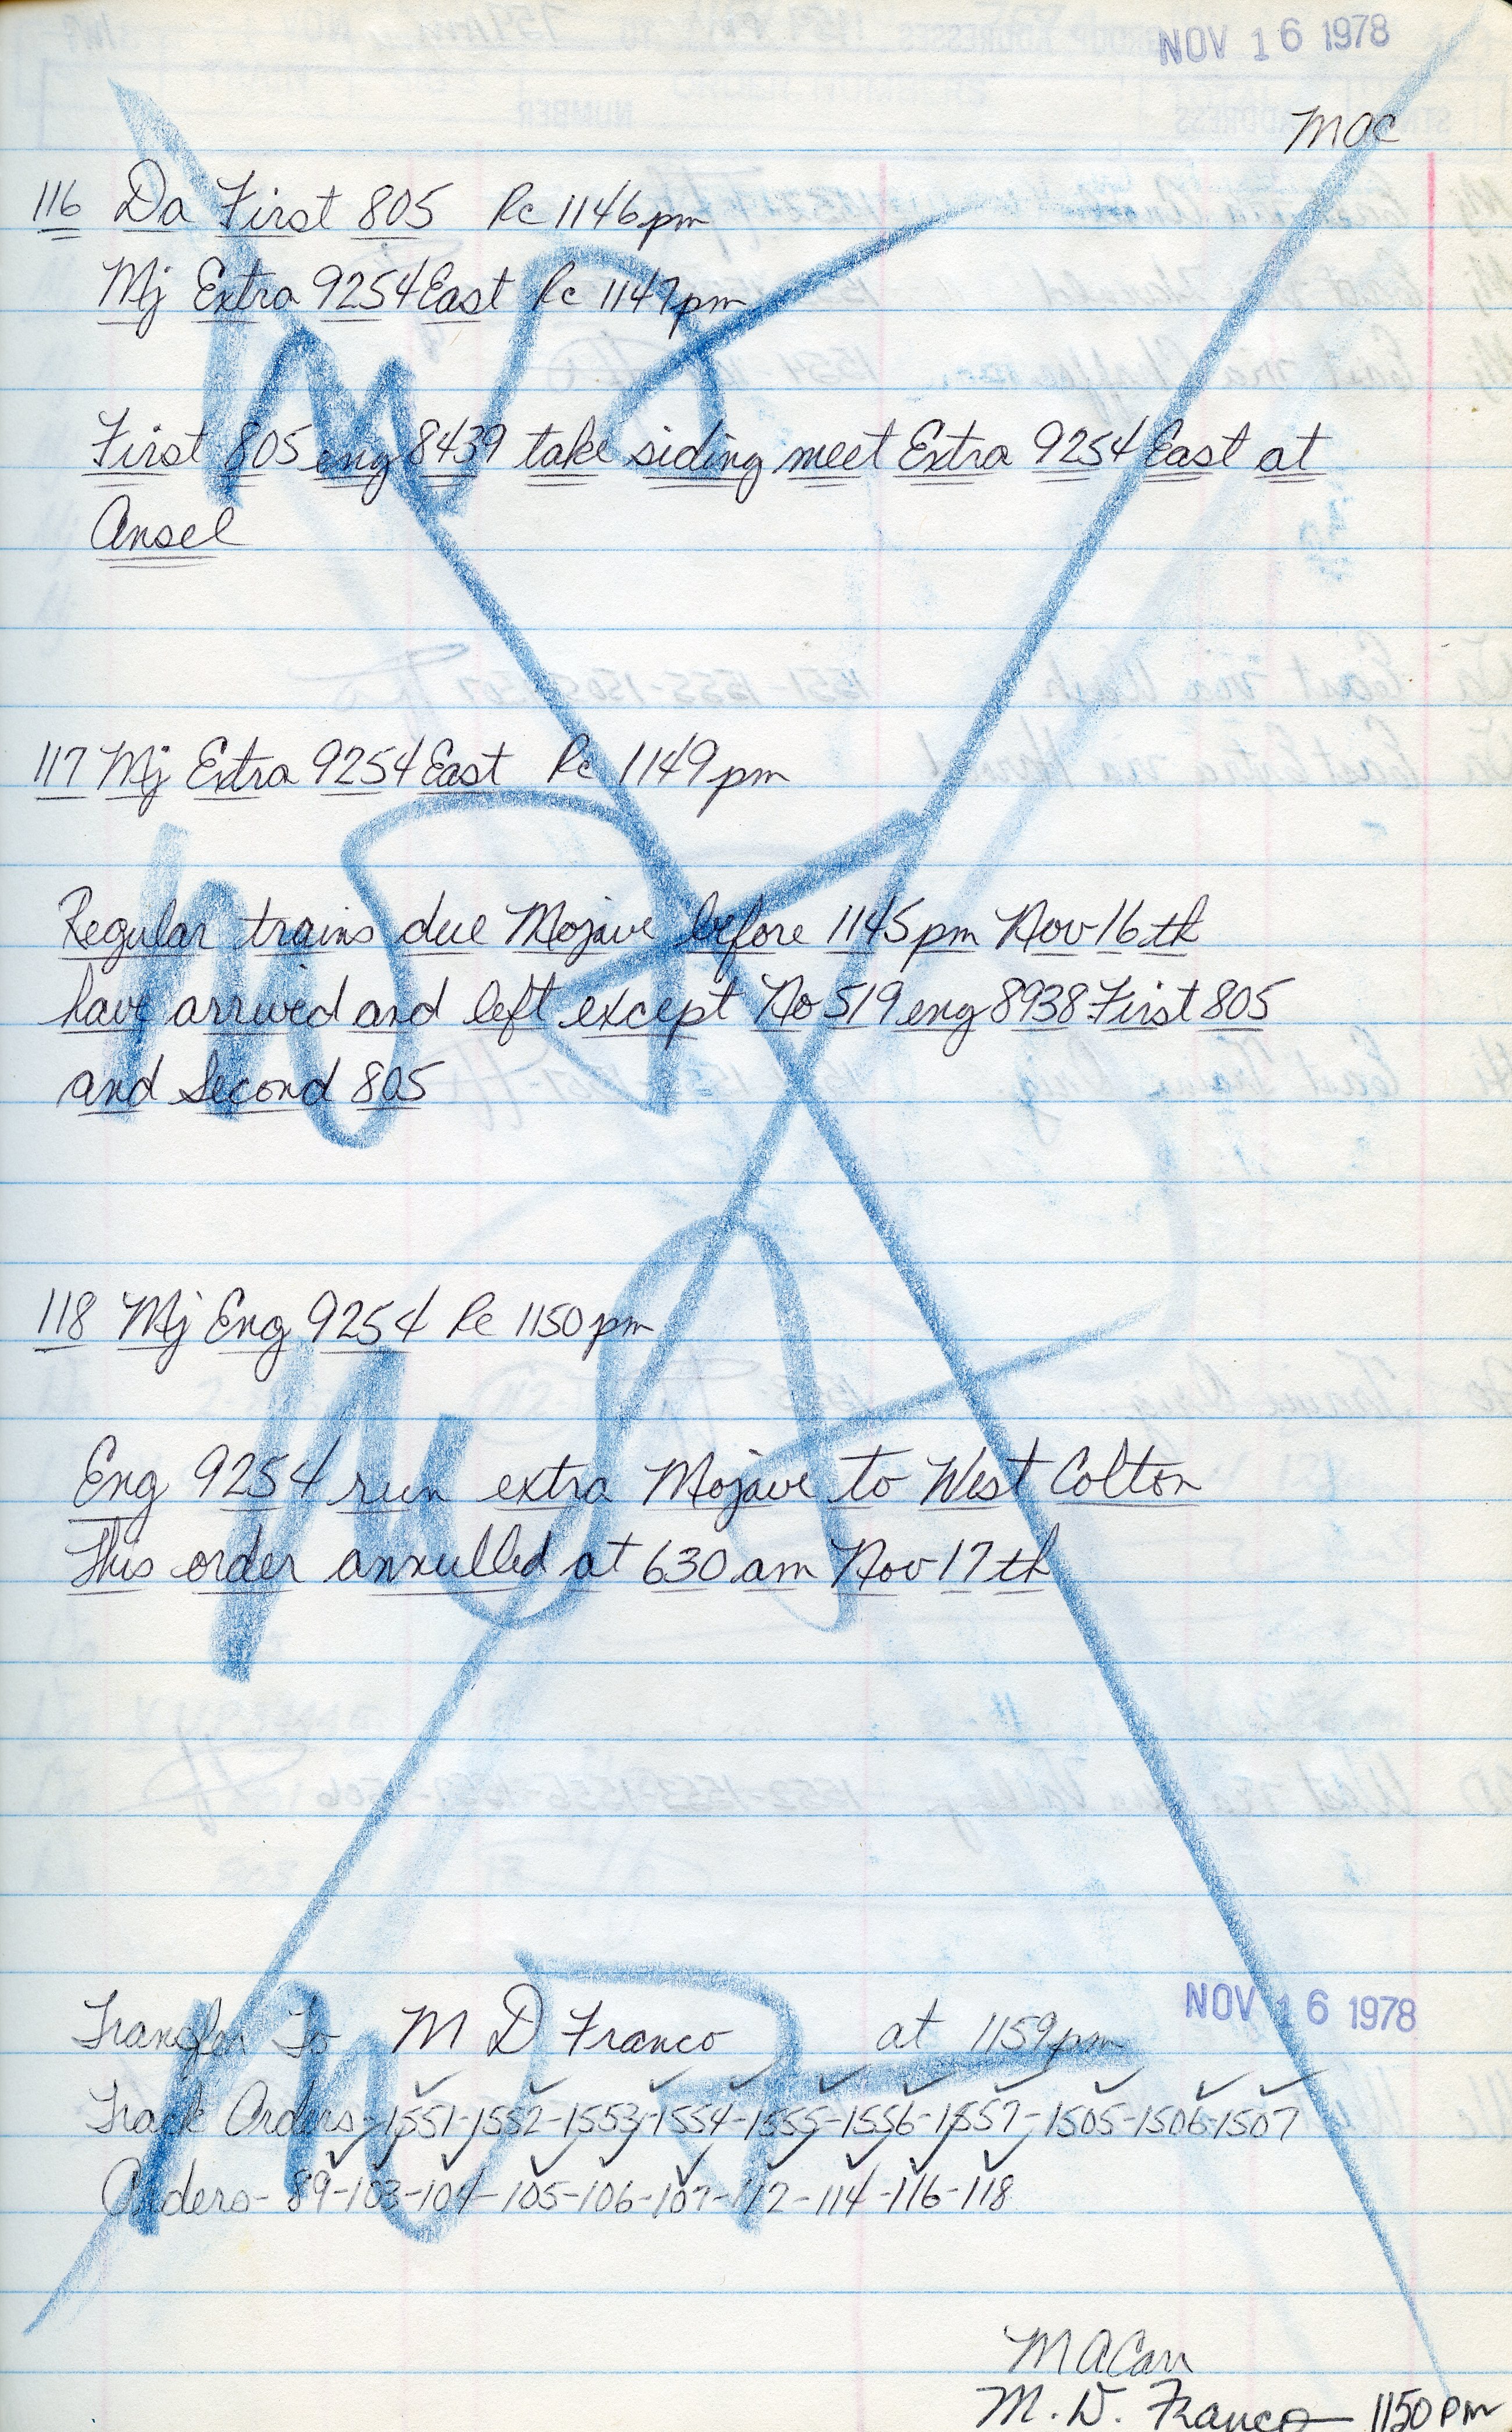 NOV 16 1978
MAC
116 Da First 805 Rc 1146pm
Mj Extra 9254 East Rc 1147pm
First 805 eng 8439 take siding meet Extra 9254 East at
Ansel
117 Mj Extra 9254 East Rc 1149pm
Regular trains due Mojave before 1145pm Nov 16th
have arrived and left except No 519 eng 8938 First 805
and Second 805
118 Mj Eng 9254 Rc 1150pm
Eng 9254 run extra Mojave to West Colton
This order annulled at 630 am Nov 17th
NOV 16 1978
Transfer To M D Franco at 1159pm
Track Orders-1551-1552-1553-1554-1555-1556-1557-1505-1506-1507
Orders-89-103-104-105-106-107-112-114-116-118
MACarr
M. D. Franco 1150 PM